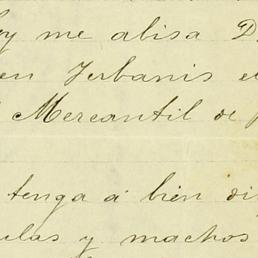 y me abisa D
en Serbanis e
Mercantil de
tenga á bien di
ulas y machos